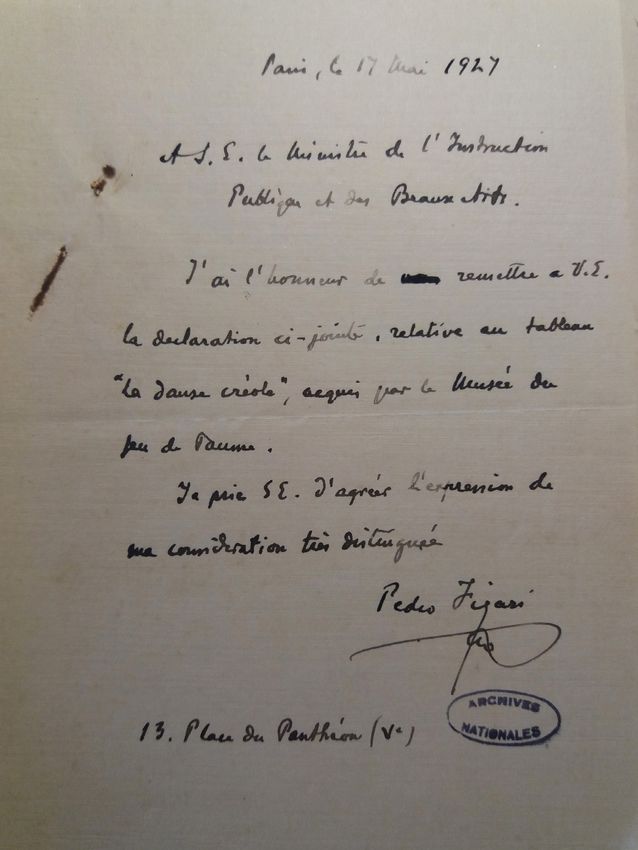 Paris, le 17 Mai 1927
A S. E. le Ministre de l'Instruction
Publique et des Beaux Arts.
J'ai l'honneur de remettre a V.E.
la declaration ci-jointe, relative au tableau
"La danse créole", acquis par le Musée du
jeu de Paume.
Je prie S E. d'agréer l'expression de
ma considération très distinguée
Pedro Figari
ARCHIVES
NATIONALES
13. Place du Panthéon (Ve)